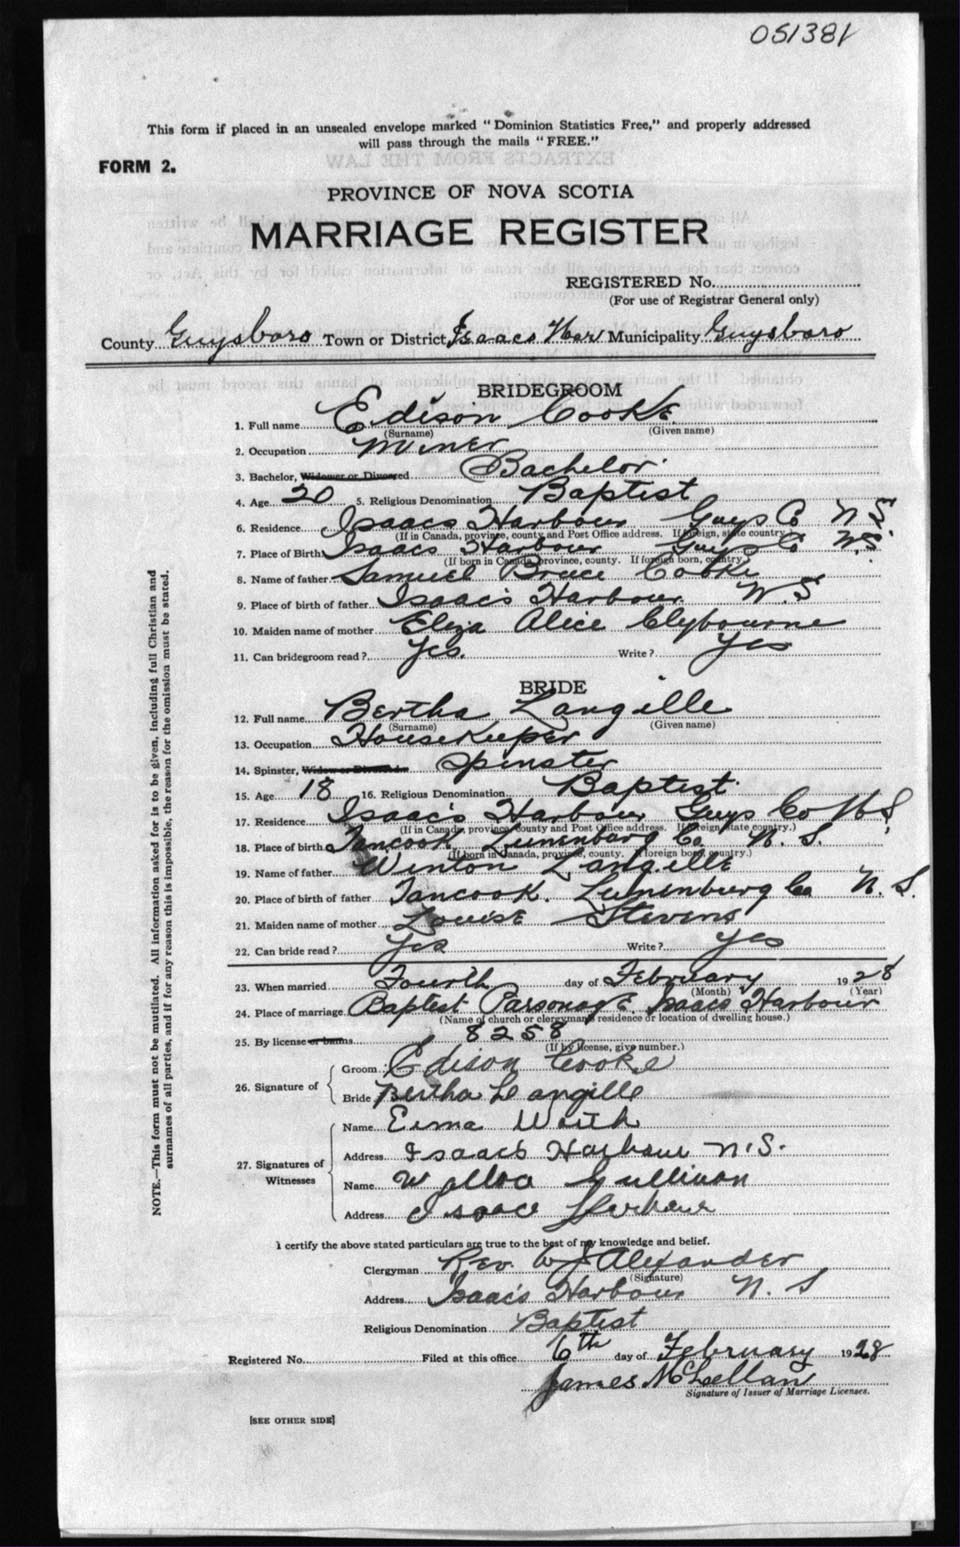 051381
This form if placed in an unsealed envelope marked "Dominion Statistics Free," and properly addressed
will pass through the mails "FREE."
FORM 2.
PROVINCE OF NOVA SCOTIA
MARRIAGE REGISTER
REGISTERED No.
(For use of Registrar General only)
County Guysboro Town or District Isaacs Har Municipality Guysboro
BRIDEGROOM
1. Full name Edison Cooke
(Surname) (Given name)
2. Occupation Miner
3. Bachelor, Widower or Divorced Bachelor
4. Age 20 5. Religious Denomination Baptist
6. Residence Isaacs Harbour Guys Co N S
(If in Canada, province, county and Post Office address. If foreign, state country.)
7. Place of Birth Isaacs Harbour Guys Co N.S.
(If born in Canada, province, county. If foreign born, country.)
8. Name of father Samuel Bruce Cooke
9. Place of birth of father Isaac's Harbour N.S
10. Maiden name of mother Eliza Alice Clybourne
11. Can bridegroom read? Yes. Write? Yes
BRIDE
12. Full name Bertha Langille
(Surname) (Given name)
13. Occupation Housekeeper
14. Spinster, Widow or Divorcée Spinster
15. Age 18 16. Religious Denomination Baptist
17. Residence Isaac's Harbour Guys Co N S
(If in Canada, province, county and Post Office address. If foreign, state country.)
18. Place of birth Tancook Lunenburg Co. N. S.
(If born in Canada, province, county. If foreign born, country.)
19. Name of father Winton Langille
20. Place of birth of father Tancook. Lunenburg Co N. S.
21. Maiden name of mother Louise Stevens
22. Can bride read? Yes Write? Yes
23. When married Fourth day of February 1928
(Month) (Year)
24. Place of marriage Baptist Parsonage. Isaacs Harbour
(Name of church or clergyman's residence or location of dwelling house.)
25. By license or banns 8258
(If by license, give number.)
26. Signature of Groom Edison Cooke
Bride Bertha Langille
27. Signatures of Witnesses
Name Erma
Address Isaacs Harbour N.S.
Name Sullivan
Address Isaac Harbour
I certify the above stated particulars are true to the best of my knowledge and belief.
Clergyman Rev. W J Alexander
(Signature)
Address Isaac's Harbour N. S
Religious Denomination Baptist
Registered No. Filed at this office 6th day of February 1928
James McLellan
Signature of Issuer of Marriage Licenses.
[SEE OTHER SIDE]
NOTE.—This form must not be mutilated. All information asked for is to be given, including full Christian and
surnames of all parties, and if for any reason this is impossible, the reason for the omission must be stated.